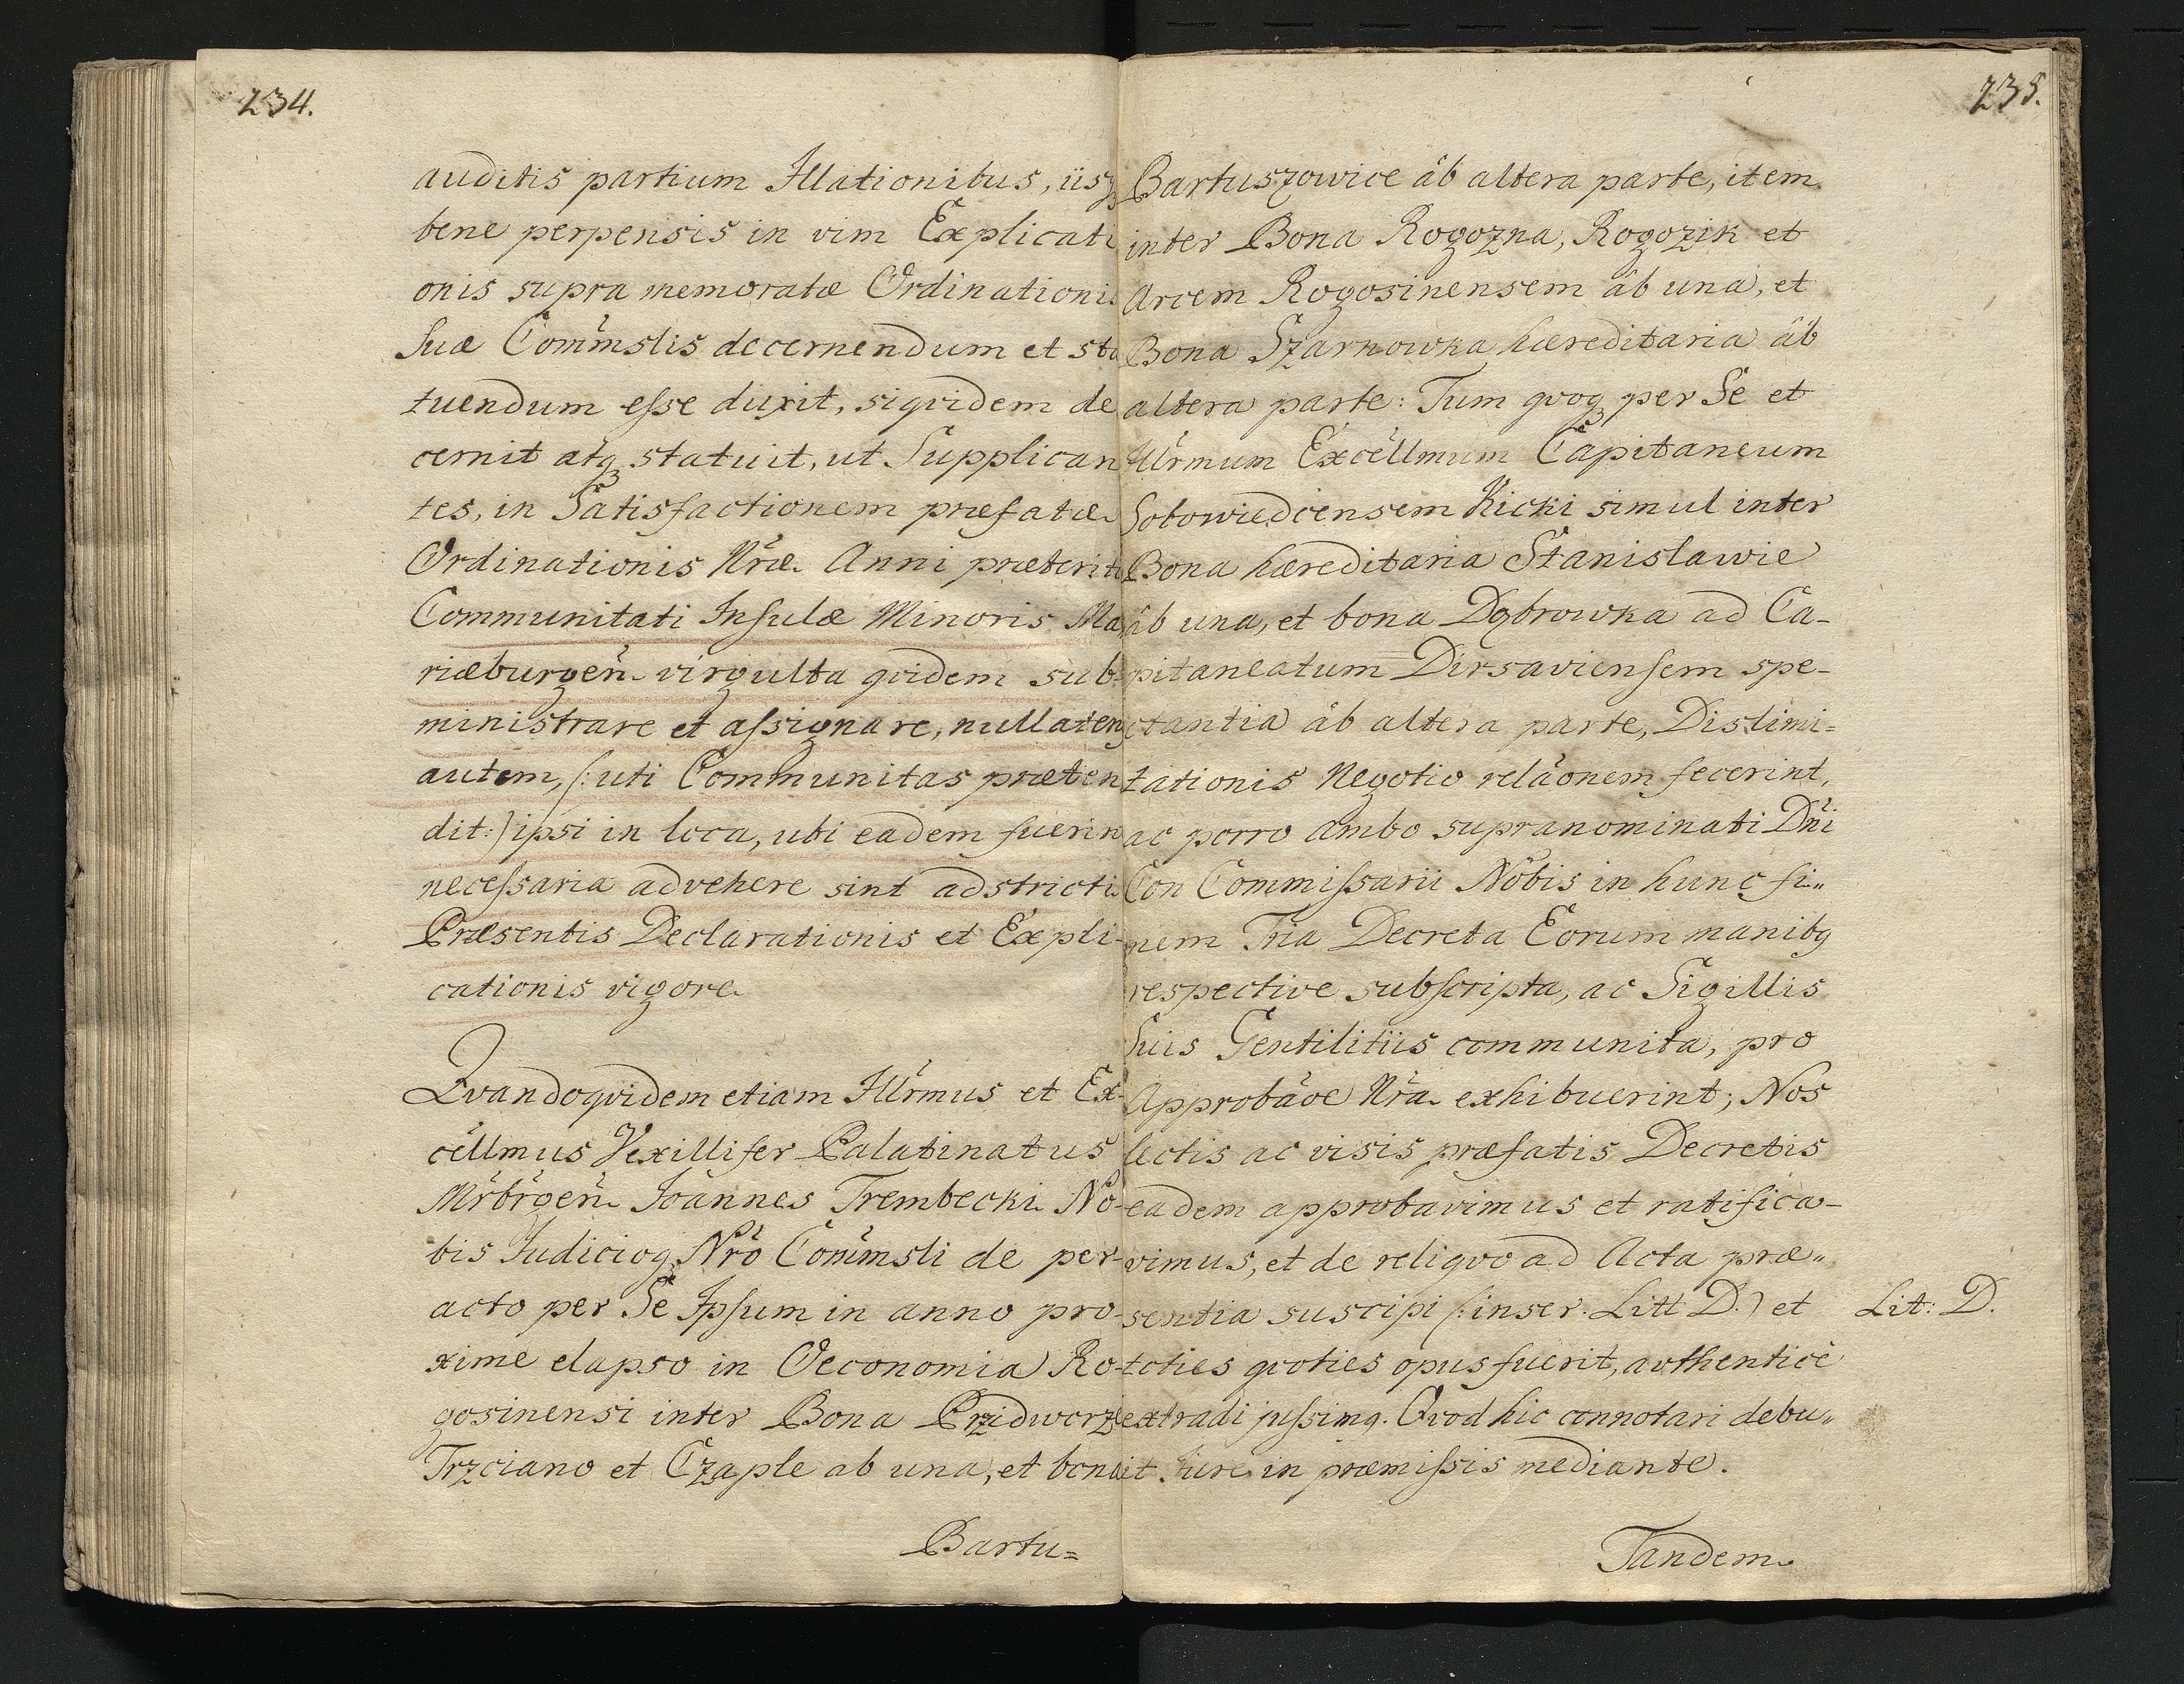 234.
auditis partium Illationibus, iisq
bene perpensis in vim Explicati
onis supra memoratæ Ordinationis
Suæ Com̃mslis decernendum et sta
tuendum eſse duxit, siqvidem de
cernit atq statuit, ut Supplican
tes, in Satisfactionem præfatæ
Ordinationis Nr̃æ Anni præteriti
Communitati Inſulæ Minoris Ma
riæburgen̄ virgulta qvidem sub
ministrare et aſsignare, nullaten9
autem, (: uti Communitas præten
dit :) ipsi in loca, ubi eadem fuerin
neceſsaria advehere sint adstricti
Præsentis Declarationis et Expli-
cationis vigore
Qvandoqvidem etiam Illr̃mus et Ex-
cell̃mus Vexillifer Palatinatus
Mr̃br̃gen̄ Joannes Trembecki No-
bis Judicioq Nr̃o Com̃msli de per-
acto per Se Ipſum in anno pro-
xime elapso in Oeconomia Ro-
gosinensi inter Bona Przidworze
Trzciano et Czaple ab una, et bona
Bartu=
235.
Bartuszowice âb altera parte, item
inter Bona Rogozna, Rogozik et
Arcem Rogosinensem âb una, et
Bona Szarnowka hæreditaria âb
altera parte: Tum qvoq per Se et
Illr̃mum Excell̃mum Capitaneum
Sobowiedcensem Kicki simul inter
Bona hæreditaria Stanislawie
âb una, et bona Dąbrowka ad Ca-
pitaneatum Dirsavienſem spe-
ctantia âb altera parte, Dislimi=
tationis Negotio relãonem fecerint,
ac porro ambo supranominati Dn̄i
Con Commiſsarii Nobis in hunc fi„
nem Tria Decreta Eorum manib9
respective subſcripta, ac Sigillis
Suis Gentilitiis communita, pro
Approbãoe Nr̃a exhibuerint; Nos
lectis ac visis præfatis Decretis
eadem approbavimus et ratifica-
vimus, et de reliqvo ad Acta præ„
sentia suscipi (: inser. Litt D.) et
Lit: D.
toties qvoties opus fuerit, avthenticè
extradi juſsim9. Qvod hic connotari debu„
it Jure in præmiſsis mediante.
Tandem